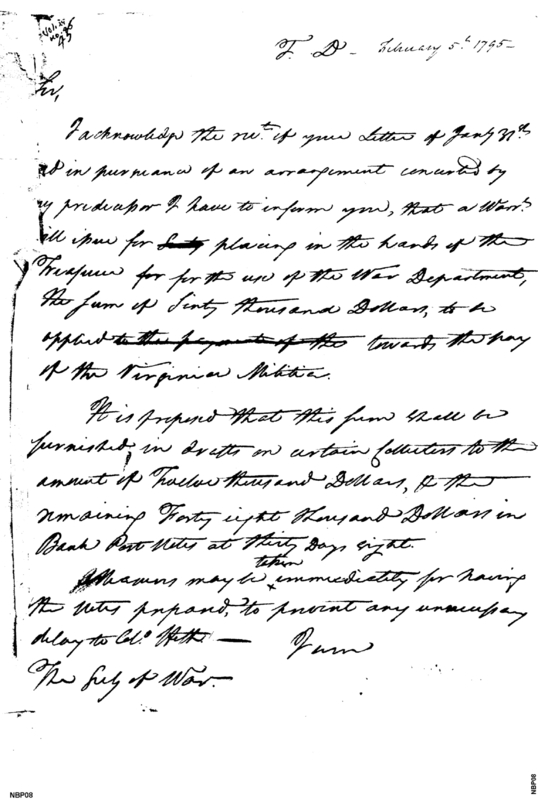 Vol. 25
T. D - February 5th 1795 -
Sir,
I acknowledge the rect. of your Letter of Jany 31st
in pursuance of an arrangement concerted by
predecessor I have to inform you, that a Warrt.
ill issue for Sixty placing in the hands of the
Treasurer for for the use of the War Department,
The Sum of Sixty thousand Dollars, to be
applied to the payment of the towards the pay
of the Virginia Militia.
It is proposed that this sum shall be
furnished, in drafts on certain Collectors to the
amount of Twelve thousand Dollars, & the
remaining Forty eight thousand Dollars in
Bank Post Notes at thirty Days sight.
taken
Measures may be immediately for having
the Notes prepared, to prevent any unnecessary
delay to Colo. Heth. — I am
The Secy of War.
NBP08
NBP08